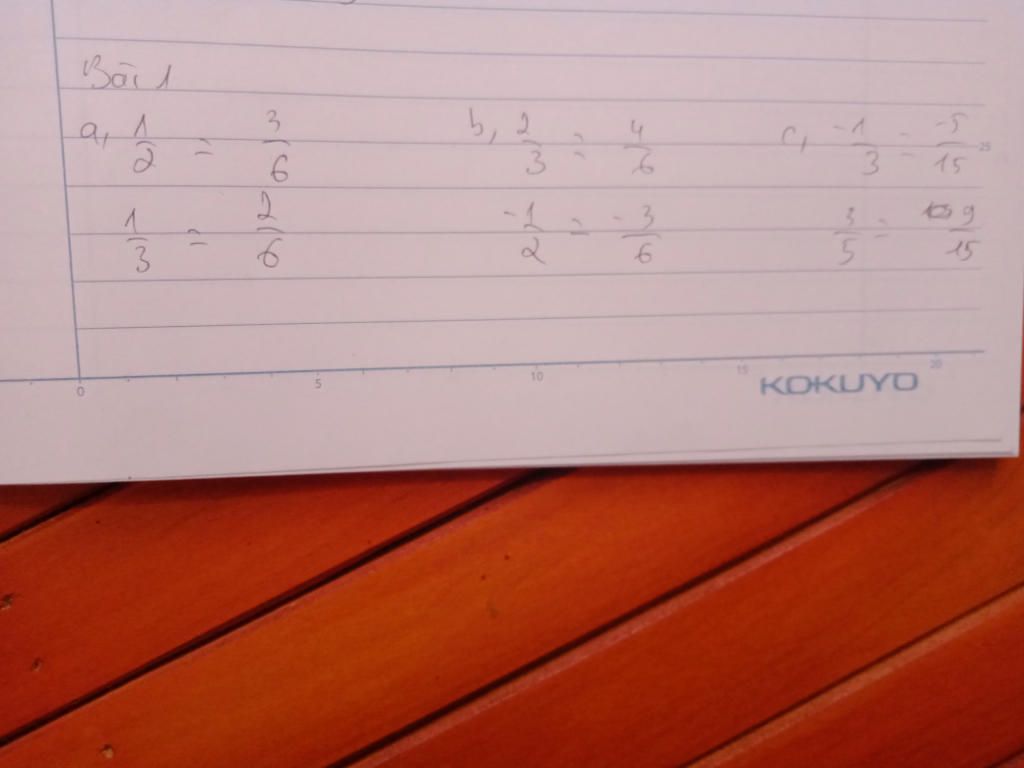 Bài 1
a, 1/2 = 3/6 b, 2/3 = 4/6 c, -1/3 = -5/15
1/3 = 2/6 -1/2 = -3/6 3/5 = 9/15
25
0 5 10 15 20
KOKUYO